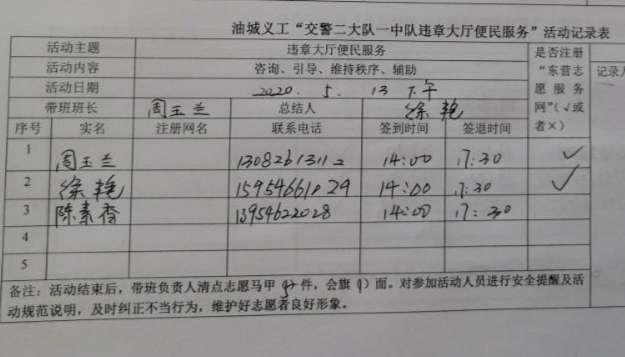 油城义工“交警二大队一中队违章大厅便民服务”活动记录表
活动主题 违章大厅便民服务 是否注册
活动内容 咨询、引导、维持秩序、辅助 “东营志 记录人
活动日期 2020. 5. 13 下午 愿服务
带班班长 周玉兰 总结人 徐艳 网”（√或
序号 实名 注册网名 联系电话 签到时间 签退时间 者×）
1 周玉兰 14:00 17:30 ✓
2 徐艳 15954661829 14:00 17:30 ✓
3 陈素香 13954622028 14:00 17:30
4
5
备注：活动结束后，带班负责人清点志愿马甲 件，会旗（1）面。对参加活动人员进行安全提醒及活
动规范说明，及时纠正不当行为，维护好志愿者良好形象。